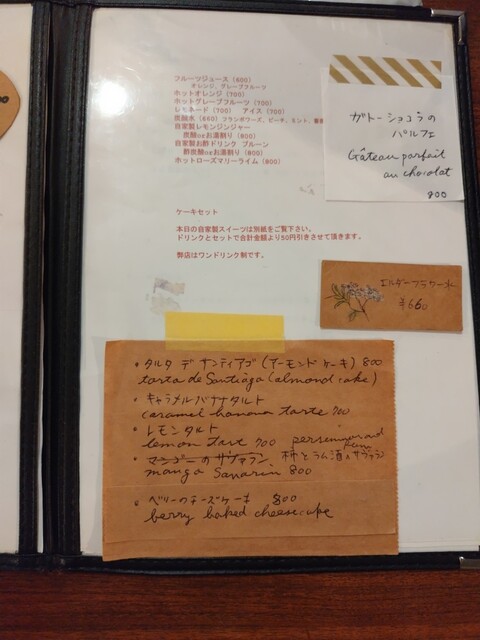 フルーツジュース (600)
オレンジ、グレープフルーツ
ホットオレンジ (700)
ホットグレープフルーツ (700)
レモネード (700) アイス (700)
炭酸水 (660) フランボワーズ、ピーチ、ミント、
自家製レモンジンジャー
炭酸orお湯割り (800)
自家製お酢ドリンク プルーン
酢炭酸orお湯割り (800)
ホットローズマリーライム (800)
ケーキセット
本日の自家製スイーツは別紙をご覧下さい。
ドリンクとセットで合計金額より50円引きさせて頂きます。
弊店はワンドリンク制です。
ガトーショコラの
パルフェ
Gâteau parfait
au chocolat
800
エルダーフラワー
¥660
・タルタ デ サンティアゴ (アーモンドケーキ) 800
tarta de Santiago (almond cake)
・キャラメルバナナタルト
caramel banana tarte 700
・レモンタルト
lemon tart 700 persimmon and
rum
・マンゴーのサヴァラン 柿とラム酒のサヴァラン
mango Savarin 800
・ベリーのチーズケーキ 800
berry baked cheesecake